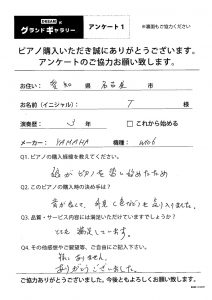 グランドギャラリー アンケート1 ※裏面もご協力ください
ピアノ購入いただき誠にありがとうございます。
アンケートのご協力お願い致します。
お住い: 愛知 県 名古屋 市
お名前(イニシャル): T 様
演奏歴: 3 年 □これから始める
メーカー: YAMAHA 機種:
Q1. ピアノの購入経緯を教えてください。
娘がピアノを習い始めたため
Q2. このピアノの購入時の決め手は?
音が良くて、
Q3. 品質・サービス内容には満足いただけていますでしょうか?
とても満足しています。
Q4. その他感想やご要望等、ご自由にご記入下さい。
特にありません。
ありがとうございました。
ご協力ありがとうございました。今後ともよろしくお願い致します。